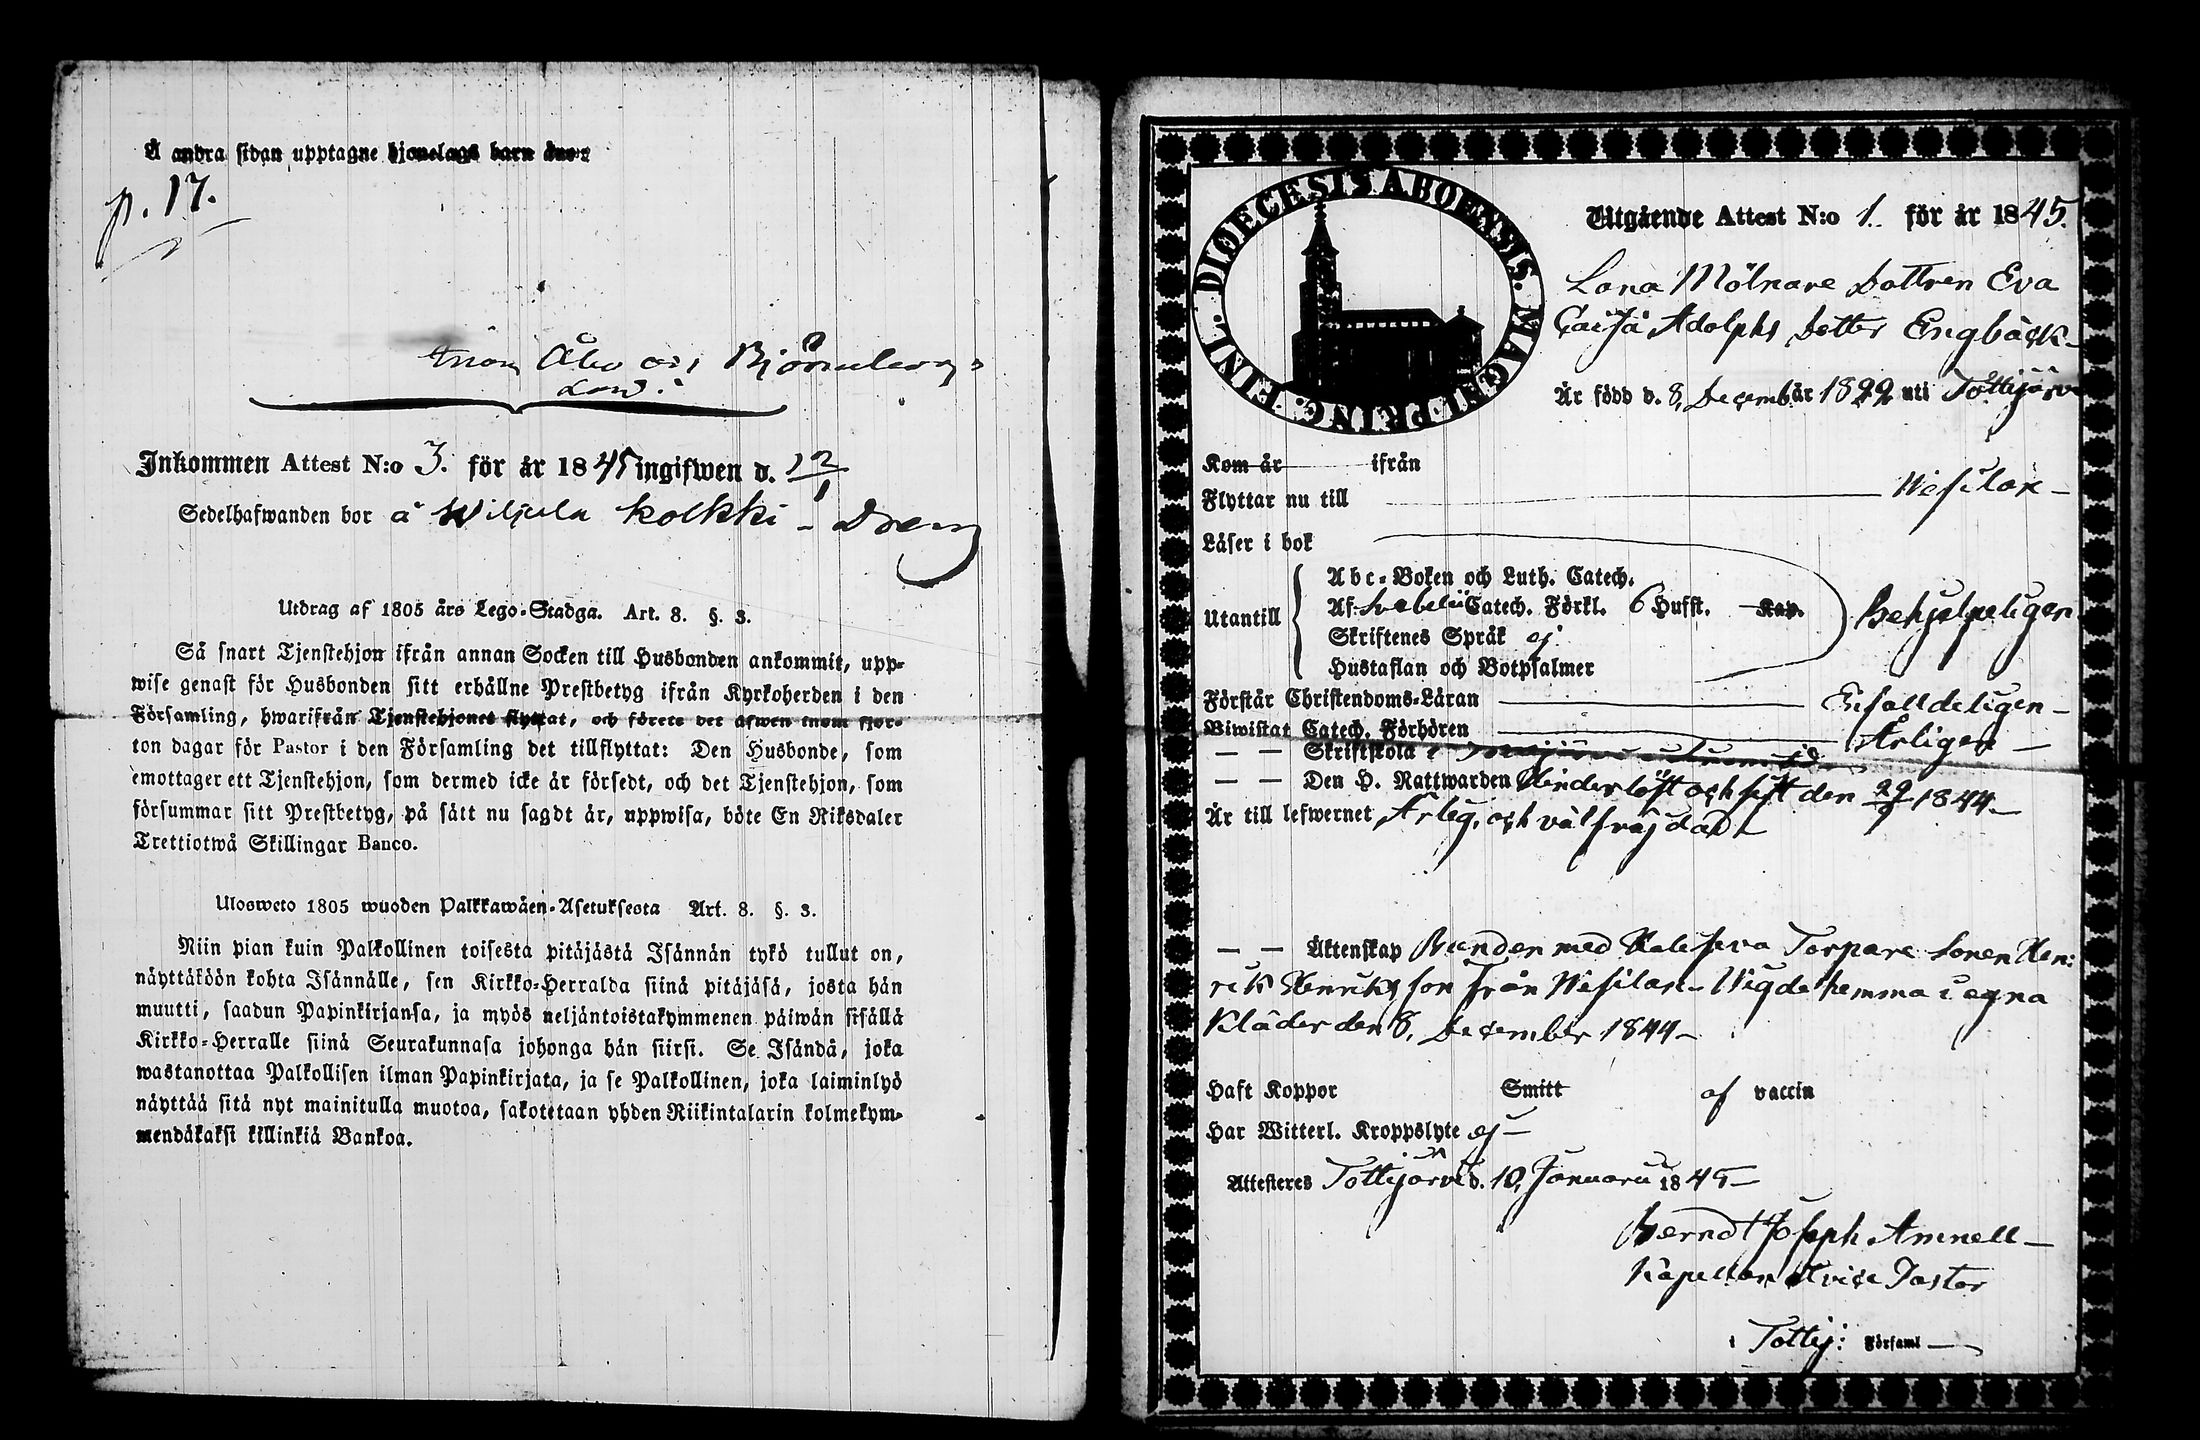 Å andra sidan upptagne hjonelags barn äro:
p. 17.
Åbo och Björneborgs
Län:
Inkommen Attest N:o 3. för år 1845 ingifwen d. 12/1
Sedelhafwanden bor å Wiljula Kolkki - Dreng
Utdrag af 1805 års Lego-Stadga. Art. 8. §. 3.
Så snart Tjenstehjon ifrån annan Socken till Husbonden ankommit, upp-
wise genast för Husbonden sitt erhållne Prestbetyg ifrån Kyrkoherden i den
Församling, hwarifrån Tjenstehjonet flyttat, och förete det äfwen inom fjor-
ton dagar för Pastor i den Församling det tillflyttat: Den Husbonde, som
emottager ett Tjenstehjon, som dermed icke är försedt, och det Tjenstehjon, som
försummar sitt Prestbetyg, på sätt nu sagdt är, uppwisa, böte En Riksdaler
Trettiotwå Skillingar Banco.
Ulosweto 1805 wuoden Palkkawäen-Asetuksesta Art. 8. §. 3.
Niin pian kuin Palkollinen toisesta pitäjästä Isännän tykö tullut on,
näyttäköön kohta Isännälle, sen Kirkko-Herralda siinä pitäjäsä, josta hän
muutti, saadun Papinkirjansa, ja myös neljäntoistakymmenen päiwän sisällä
Kirkko-Herralle siinä Seurakunnasa johonga hän siirsi. Se Isändä, joka
wastanottaa Palkollisen ilman Papinkirjata, ja se Palkollinen, joka laiminlyö
näyttää sitä nyt mainitulla muotoa, sakotetaan yhden Riikintalarin kolmekym-
mendäkaksi killinkiä Bankoa.
DIOECESIS ABOENSIS. MAGNI PRINC. FINL.
Utgående Attest N:o 1. för år 1845.
Lona Mölnare Dottren Eva
Caisa Adolphs Dotter Engbäck
Är född d. 8, Decemb. år 1822 uti Tottijärvi
Kom år ifrån
Flyttar nu till Wesilax
Läser i bok
Utantill
Abc-Boken och Luth. Catech.
Af Svebelii Catech. Förkl. 6 Hufst. Kap. Behjelpeligen
Skriftenes Språk ej
Hustaflan och Botpsalmer
Förstår Christendoms-Läran Enfalldeligen
Biwistat Catech. Förhören Årligen
— — Skriftskola
— — Den H. Nattwarden Hinderlöst och sist den 29/9 1844
Är till lefwernet Ärlig, och välfräjdad
— — Äktenskap Bunden med Torpare Sonen Hen:
rik Henriksson från Wesilax. Wigde hemma i egna
Kläder den 8, December 1844
Haft Koppor Smitt af vaccin
Har Witterl. Kroppslyte ej
Attesteres Tottijärvi d. 10, Januarii 1845
Berndt Joseph Amnell
Kapellan Vice Pastor
i Tottij: Församl